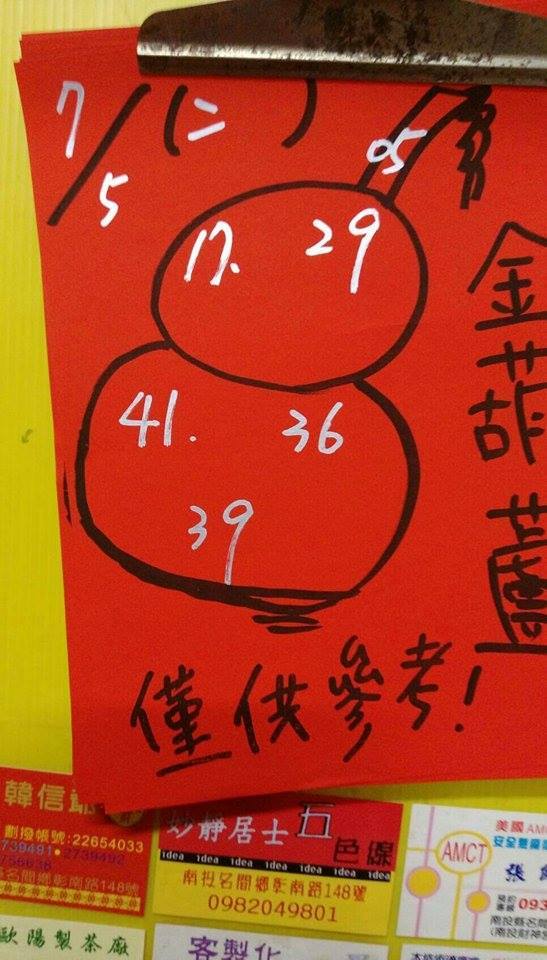 7/5 (二)
05
17. 29
41. 36
39
金葫蘆
僅供參考!
韓信爺
劃撥帳號:22654033
739491・2739492
756636
名間鄉彰南路148號
妙靜居士 五色線
idea idea idea idea idea idea
南投名間鄉彰南路148號
0982049801
美國AM
安全
AMCT
張
預約專線 093
南投縣名間
(南投財神
歐陽製茶廠
客製化